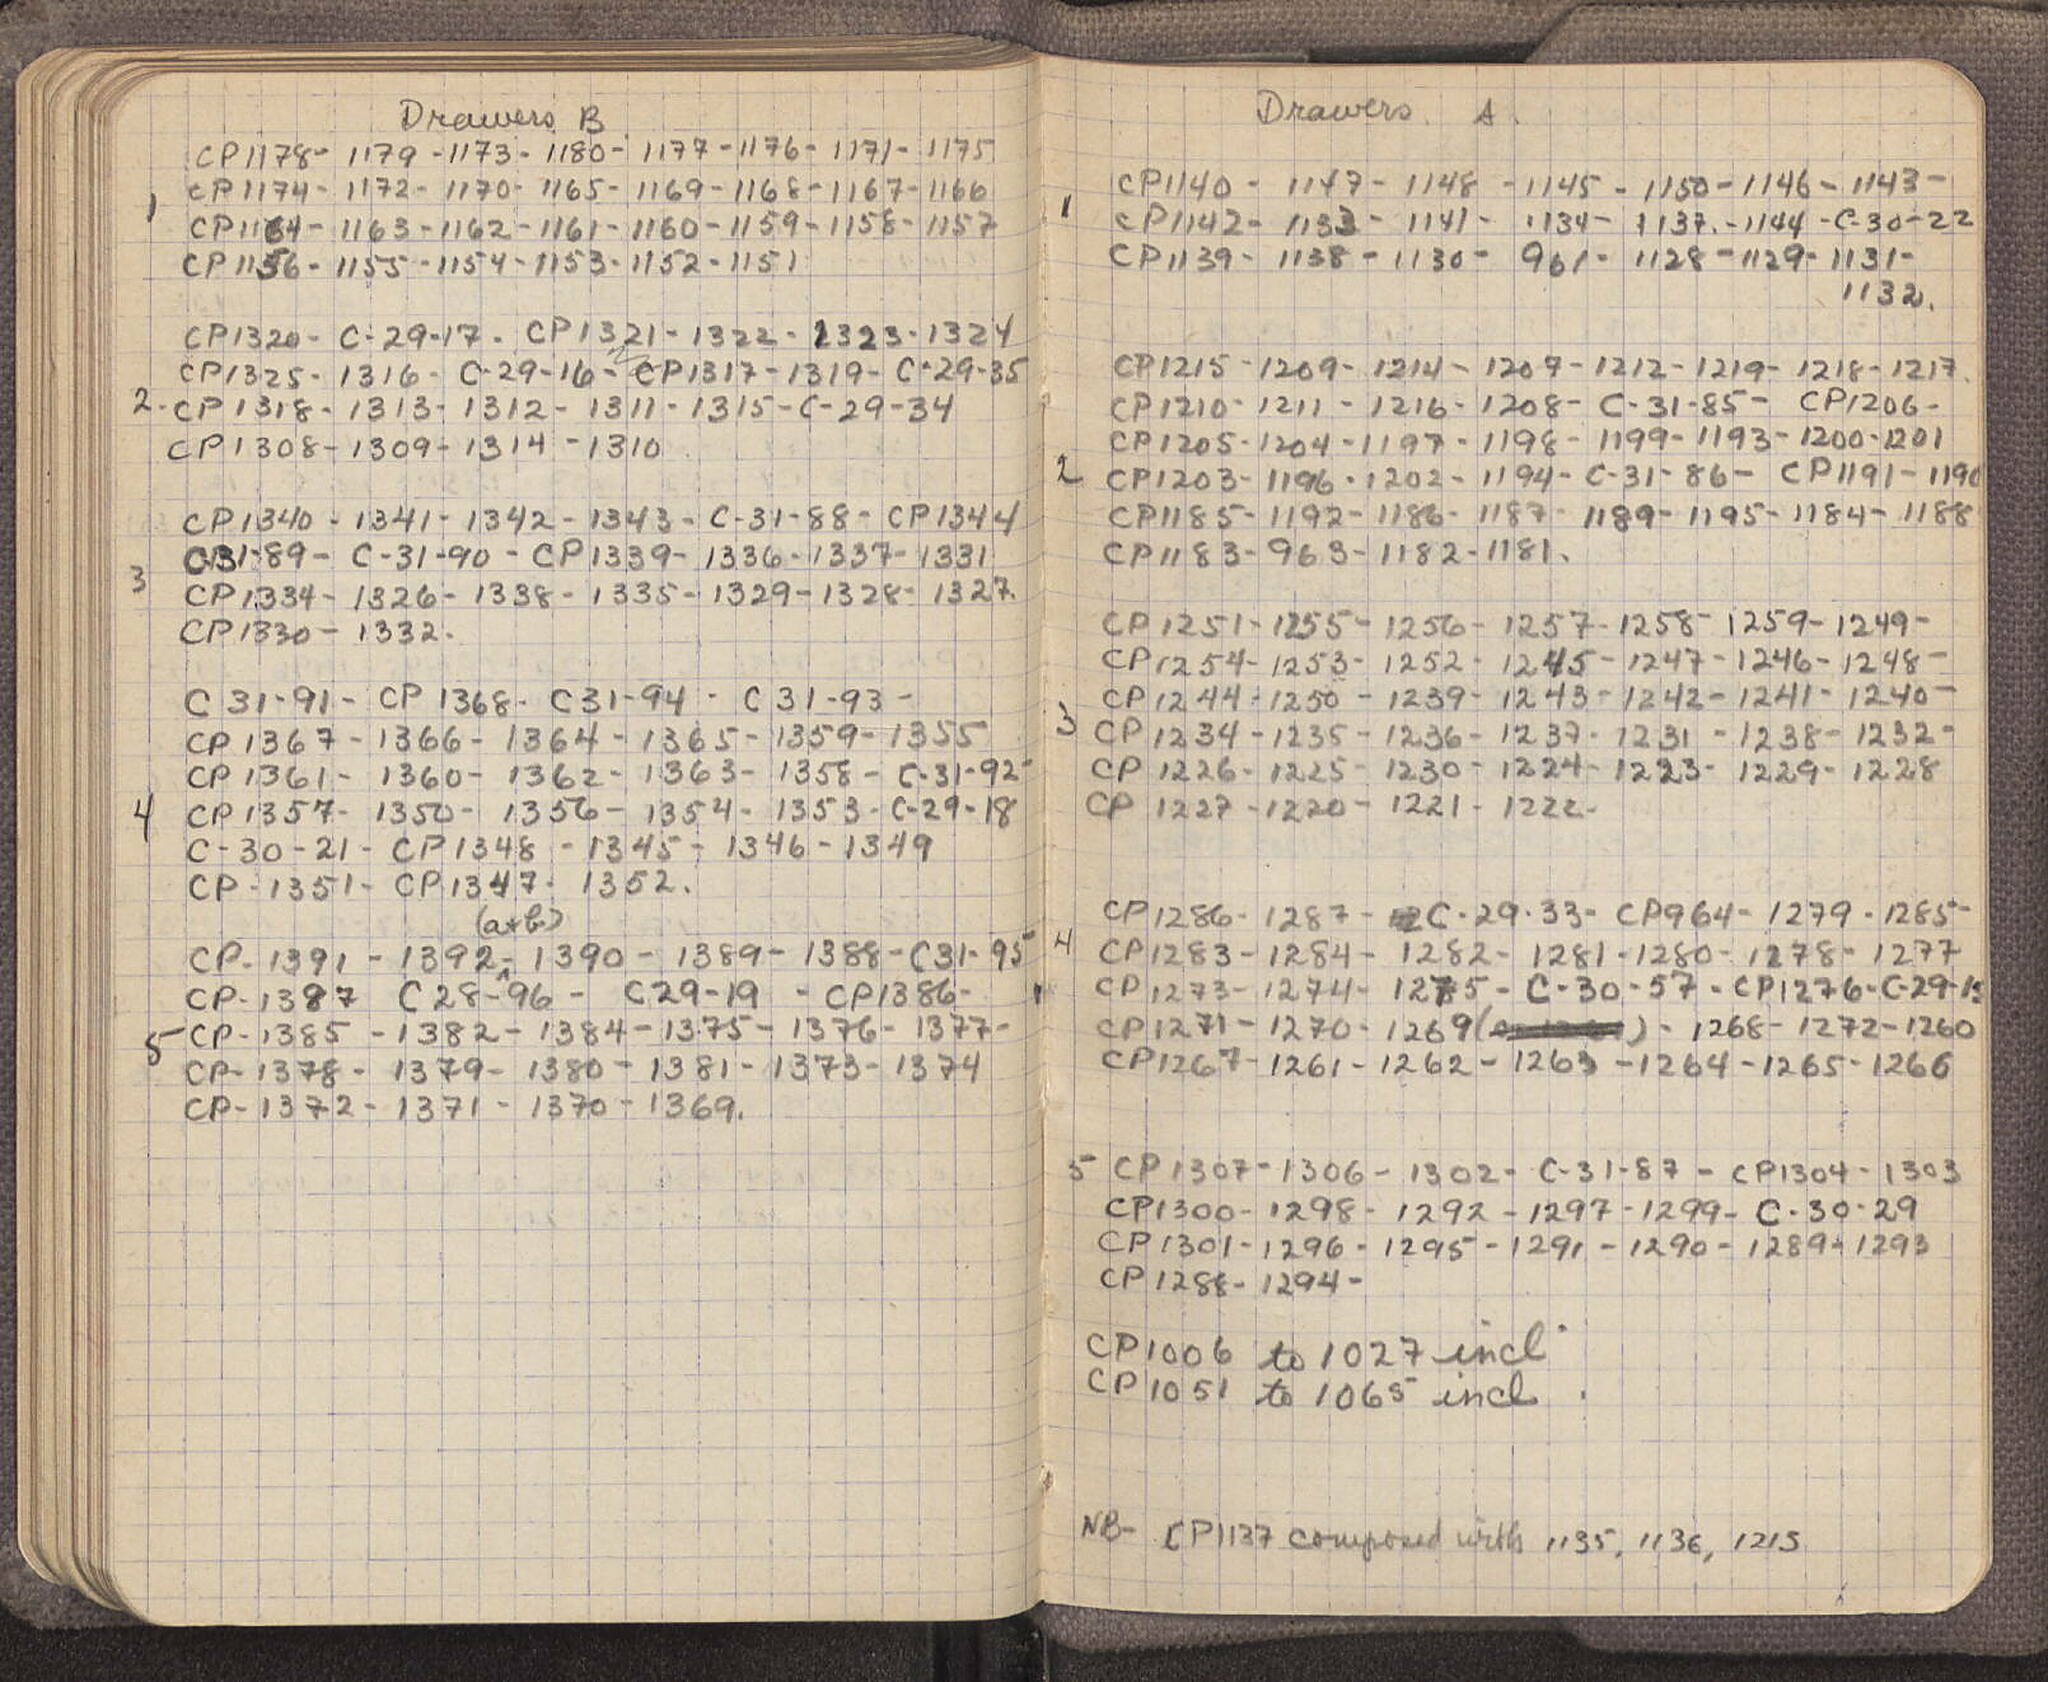 Drawers B
CP1178- 1179 -1173- 1180- 1177-1176- 1171- 1175
CP1174- 1172- 1170- 1165- 1169-1168-1167-1166
1
CP1164- 1163-1162-1161-1160-1159-1158-1157
CP1156- 1155-1154-1153-1152-1151
CP1320- C-29-17- CP1321-1322- 1323-1324
CP1325- 1316- C-29-16- CP1317-1319- C-29-35
2- CP 1318- 1313- 1312- 1311-1315-C-29-34
CP1308-1309-1314 -1310
CP1340 - 1341- 1342- 1343- C-31-88- CP1344
C31-89- C-31-90- CP1339- 1336-1337-1331
3
CP1334- 1326- 1338- 1335- 1329-1328- 1327.
CP1330- 1332.
C 31-91- CP 1368- C31-94 - C 31-93-
CP 1367 -1366- 1364 -1365- 1359- 1355
CP 1361- 1360- 1362- 1363- 1358- C-31-92-
4 CP1357- 1350- 1356- 1354- 1353- C-29-18
C-30-21- CP1348 - 1345- 1346-1349
CP-1351- CP1347- 1352.
(a+b)
CP- 1391 - 1392- 1390- 1389- 1388-C31-95
CP-1387 C28-96 - C29-19 - CP1386-
5 CP-1385 -1382- 1384-1375- 1376- 1377-
CP-1378- 1379- 1380- 1381- 1373- 1374
CP-1372- 1371- 1370-1369.
Drawers. A.
CP1140 - 1147- 1148 -1145 - 1150-1146- 1143-
1 CP1142- 1133- 1141- 1134- 1137.-1144 -C-30-22
CP1139- 1138-1130- 961- 1128-1129-1131-
1132.
CP1215-1209- 1214- 1207- 1212-1219- 1218-1217.
CP1210-1211 - 1216- 1208- C-31-85- CP1206-
CP1205-1204-1197- 1198- 1199-1193-1200-1201
2 CP1203- 1196-1202- 1194- C-31-86- CP1191-1190
CP1185-1192-1186- 1187- 1189-1195-1184- 1188
CP1183-963-1182-1181.
CP 1251- 1255- 1256- 1257-1258- 1259-1249-
CP1254-1253- 1252- 1245-1247-1246-1248-
CP 1244-1250 - 1239-1243-1242-1241- 1240-
3 CP 1234-1235-1236-1237- 1231 -1238- 1232-
CP 1226-1225- 1230-1224-1223- 1229-1228
CP 1227 -1220- 1221- 1222-
CP1286- 1287- C-29-33- CP964- 1279-1285-
4 CP1283-1284- 1282- 1281-1280- 1278-1277
CP1273-1274- 1275- C-30-57- CP1276-C-29-
CP1271-1270- 1269( ) - 1268- 1272-1260
CP1267-1261-1262-1263 -1264-1265-1266
5 CP1307-1306- 1302- C-31-87 - CP1304-1303
CP1300- 1298- 1292 -1297-1299- C-30-29
CP1301-1296- 1295-1291-1290- 1289-1293
CP1288- 1294-
CP1006 to 1027 incl
CP1051 to 1065 incl.
NB- CP1137 composed with 1135, 1136, 1215